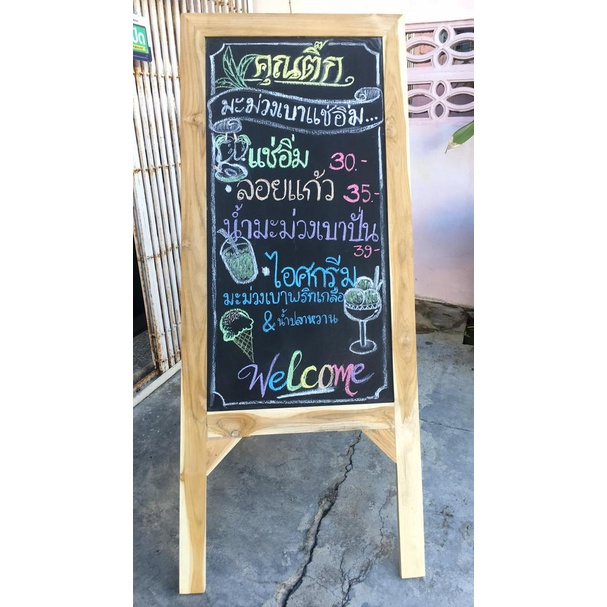 คุณติ๊ก
มะม่วงเบาแช่อิ่ม...
แช่อิ่ม 30.-
• ลอยแก้ว 35.-
น้ำมะม่วงเบาปั่น
39.-
• ไอศกรีม
มะม่วงเบาพริกเกลือ
& น้ำปลาหวาน
Welcome